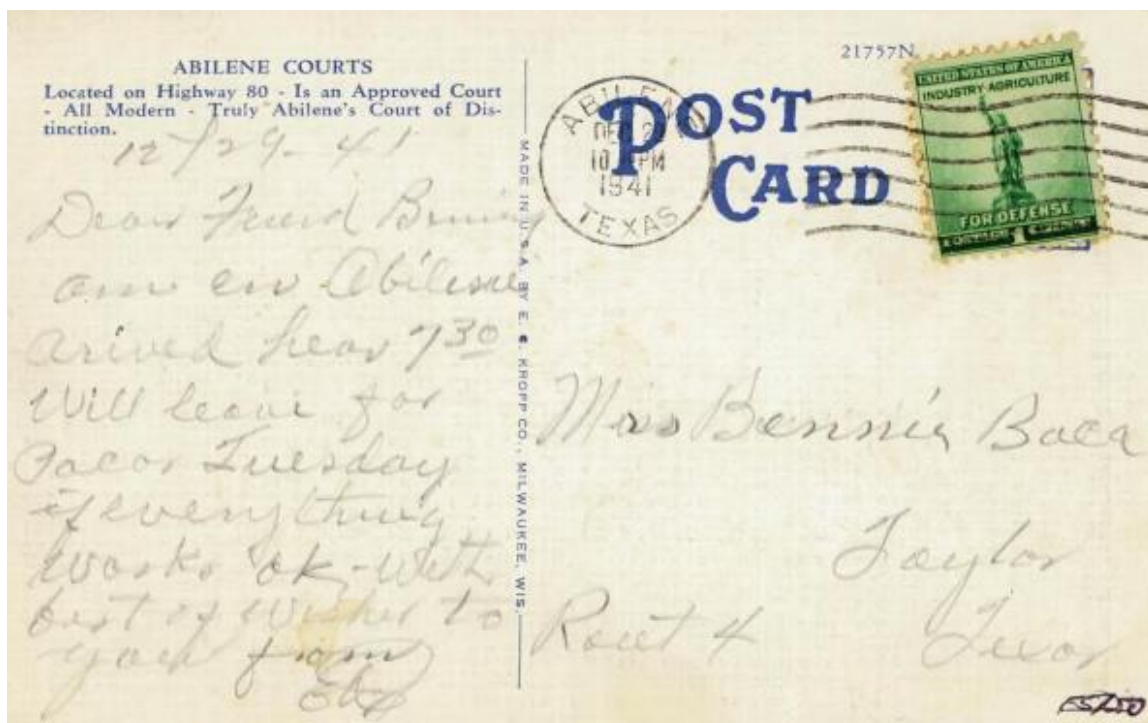 ABILENE COURTS
Located on Highway 80 - Is an Approved Court
- All Modern - Truly Abilene's Court of Dis-
tinction.
12/29-41
Dear Friend Bennie
am en Abilene
arived hear 7 30
Will leave for
Pacos Tuesday
if everything
Works ok-with
best of Wishes to
you from
MADE IN U.S.A. BY E. C. KROPP CO., MILWAUKEE, WIS.
21757N
POST
CARD
ABILENE
DEC 29
10 PM
1941
TEXAS
UNITED STATES OF AMERICA
INDUSTRY AGRICULTURE
FOR DEFENSE
POSTAGE 1 CENT
Miss Bennie Baca
Taylor
Rout 4 Texas